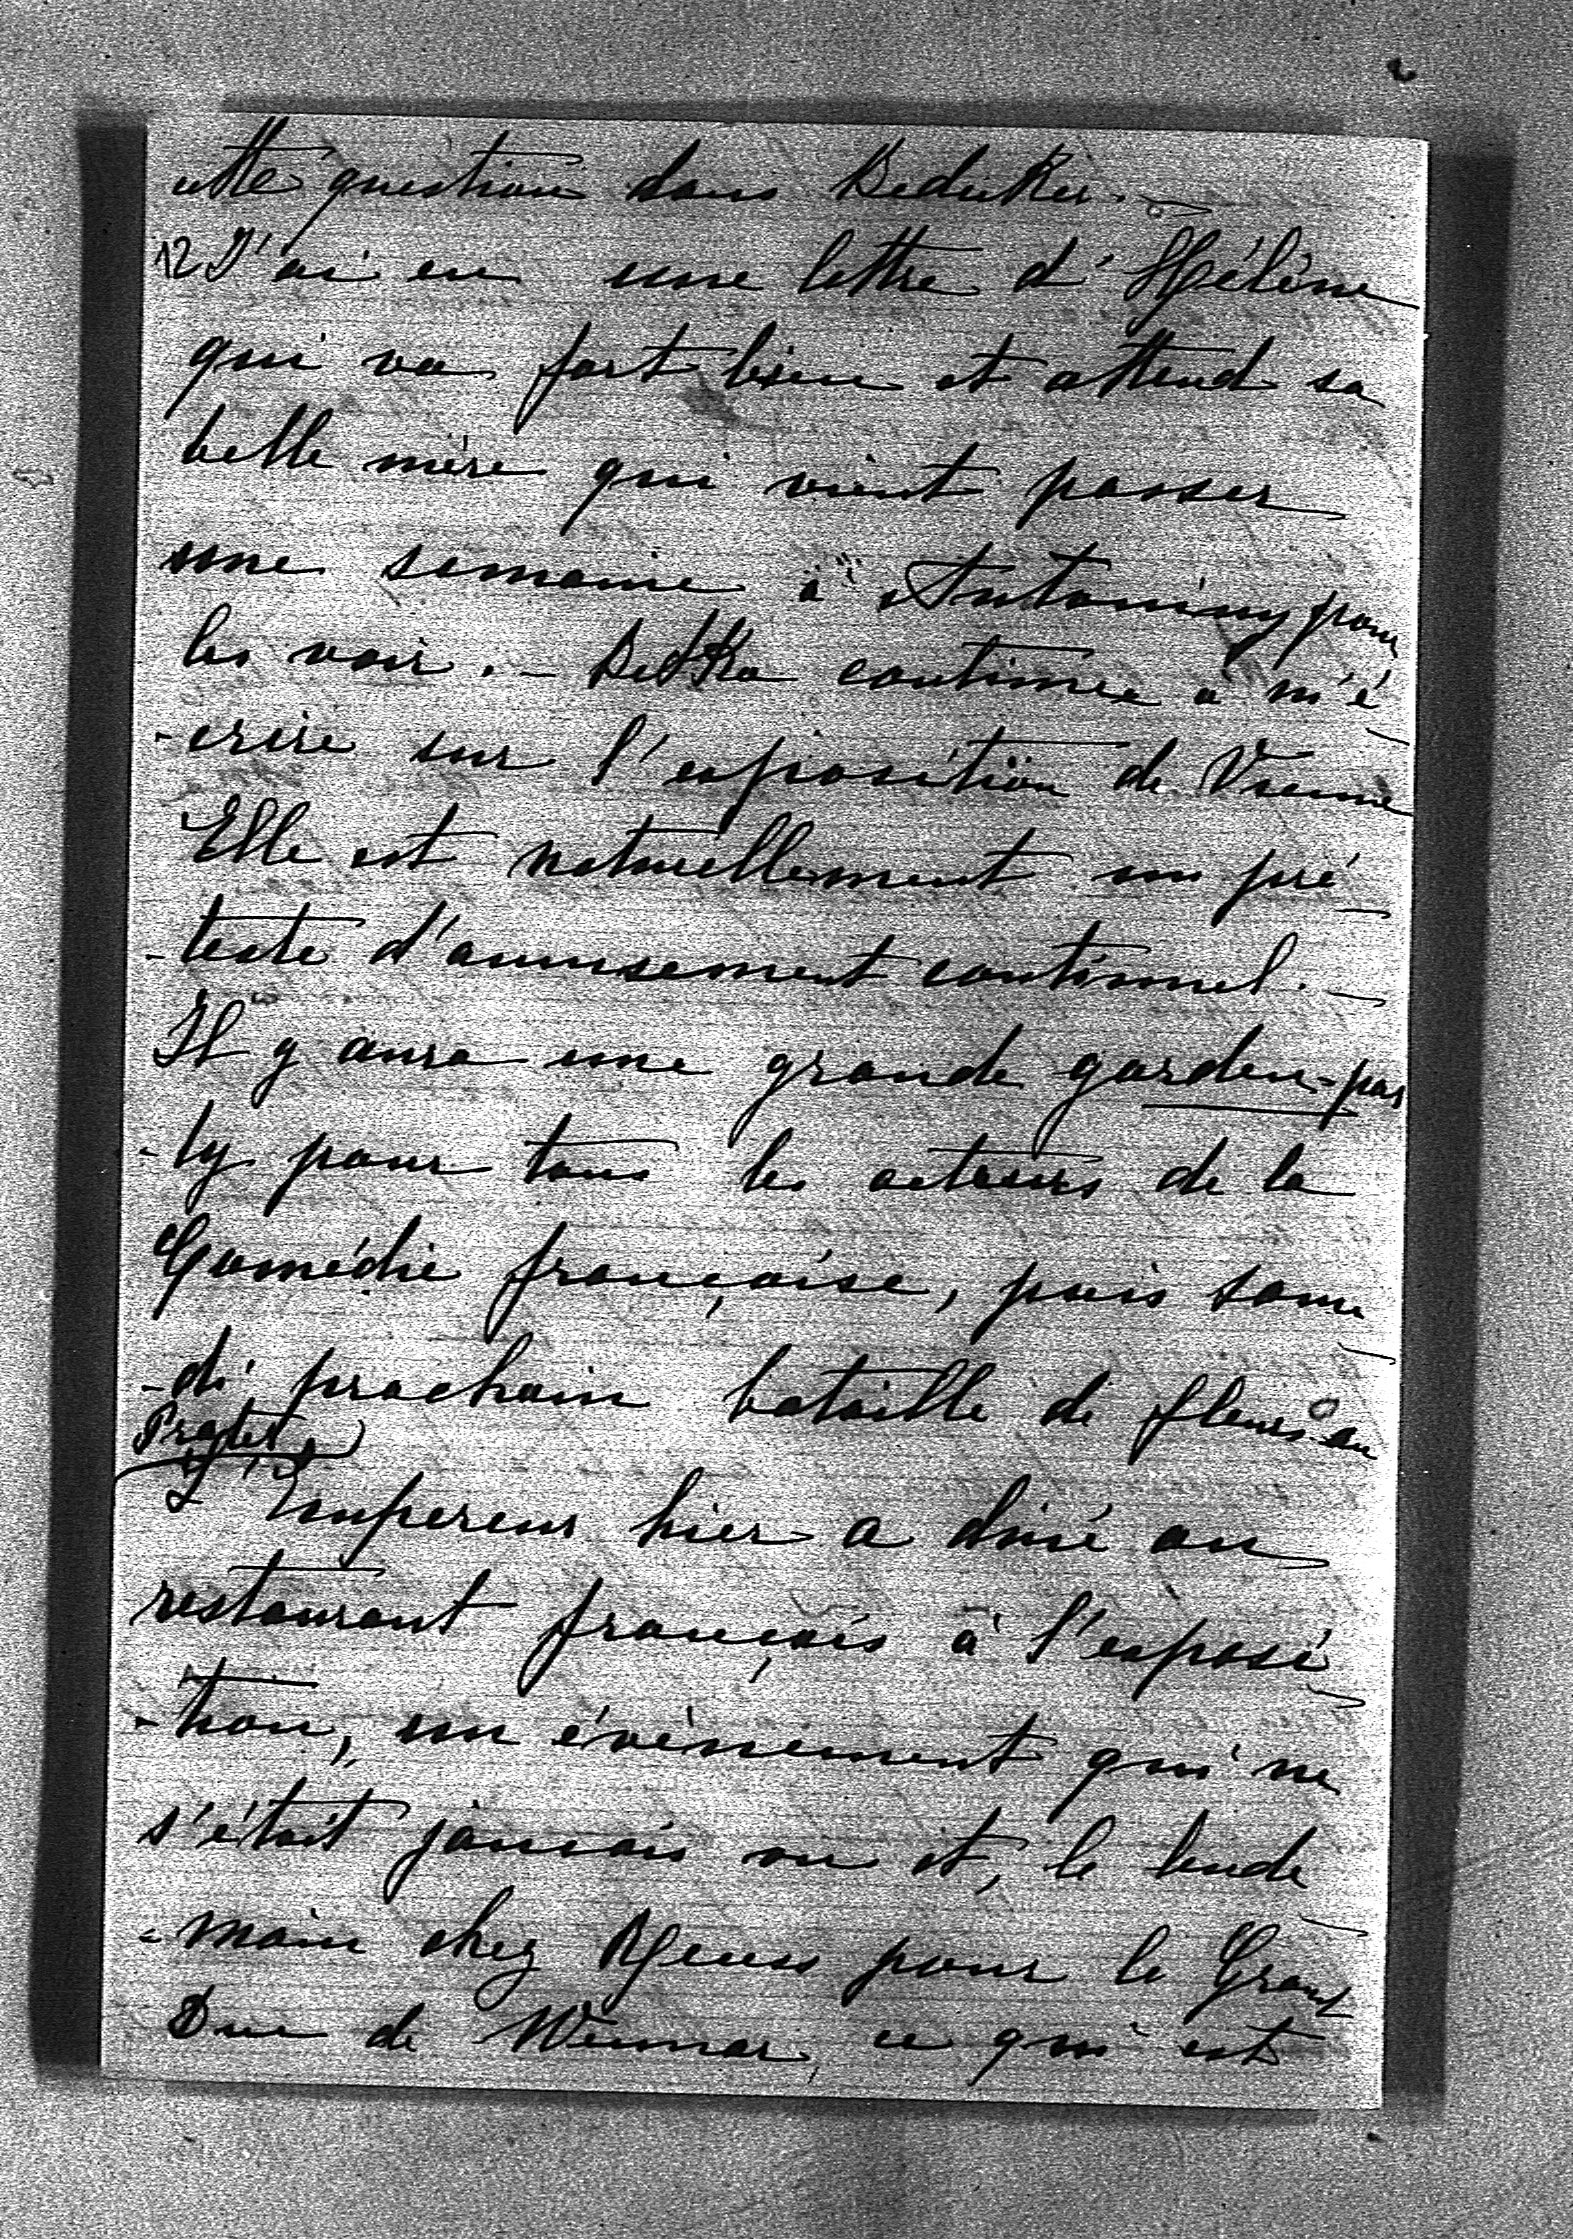 cette question dans Bedecker. —
12 J'ai eu une lettre d'Hélène
qui va fort bien et attend sa
belle mère qui vient passer
une semaine à Antoniny pour
les voir. — Betka continue à m'é
-crire sur l'exposition de Vienne
Elle est naturellement un pré
-texte d'amusement continuel. —
Il y aura une grande garden-par
-ty pour tous les acteurs de la
Comédie française, puis same
-di prochain bataille de fleurs au
Prater
L'Empereur hier a diné au
restaurant français à l'exposi
-tion, un évènement qui ne
s'était jamais vu et, le lende
-main chez Reuss pour le Grand
Duc de Weimar, ce qui est